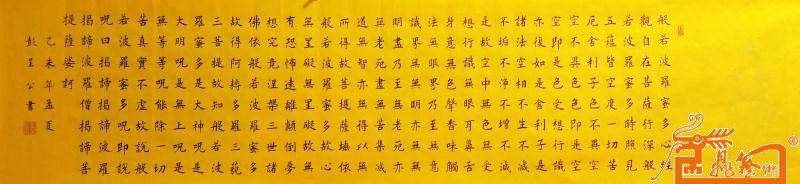 般若波羅蜜多心經
觀自在菩薩行深般
若波羅蜜多時照見
五蘊皆空度一切苦
厄舍利子色不異空
空不異色色即是空
空即是色受想行識
亦復如是舍利子是
諸法空相不生不滅
不垢不淨不增不減
是故空中無色無受
想行識無眼耳鼻舌
身意無色聲香味觸
法無眼界乃至無意
識界無無明亦無無
明盡乃至無老死亦
無老死盡無苦集滅
道無智亦無得以無
所得故菩提薩埵依
般若波羅蜜多故心
無罣礙無罣礙故無
有恐怖遠離顛倒夢
想究竟涅槃三世諸
佛依般若波羅蜜多
故得阿耨多羅三藐
三菩提故知般若波
羅蜜多是大神呪是
大明呪是無上呪是
無等等呪能除一切
苦真實不虛故說般
若波羅蜜多呪即說
呪曰揭諦揭諦波羅
揭諦波羅僧揭諦菩
提薩婆訶
乙未年孟夏
彭公書